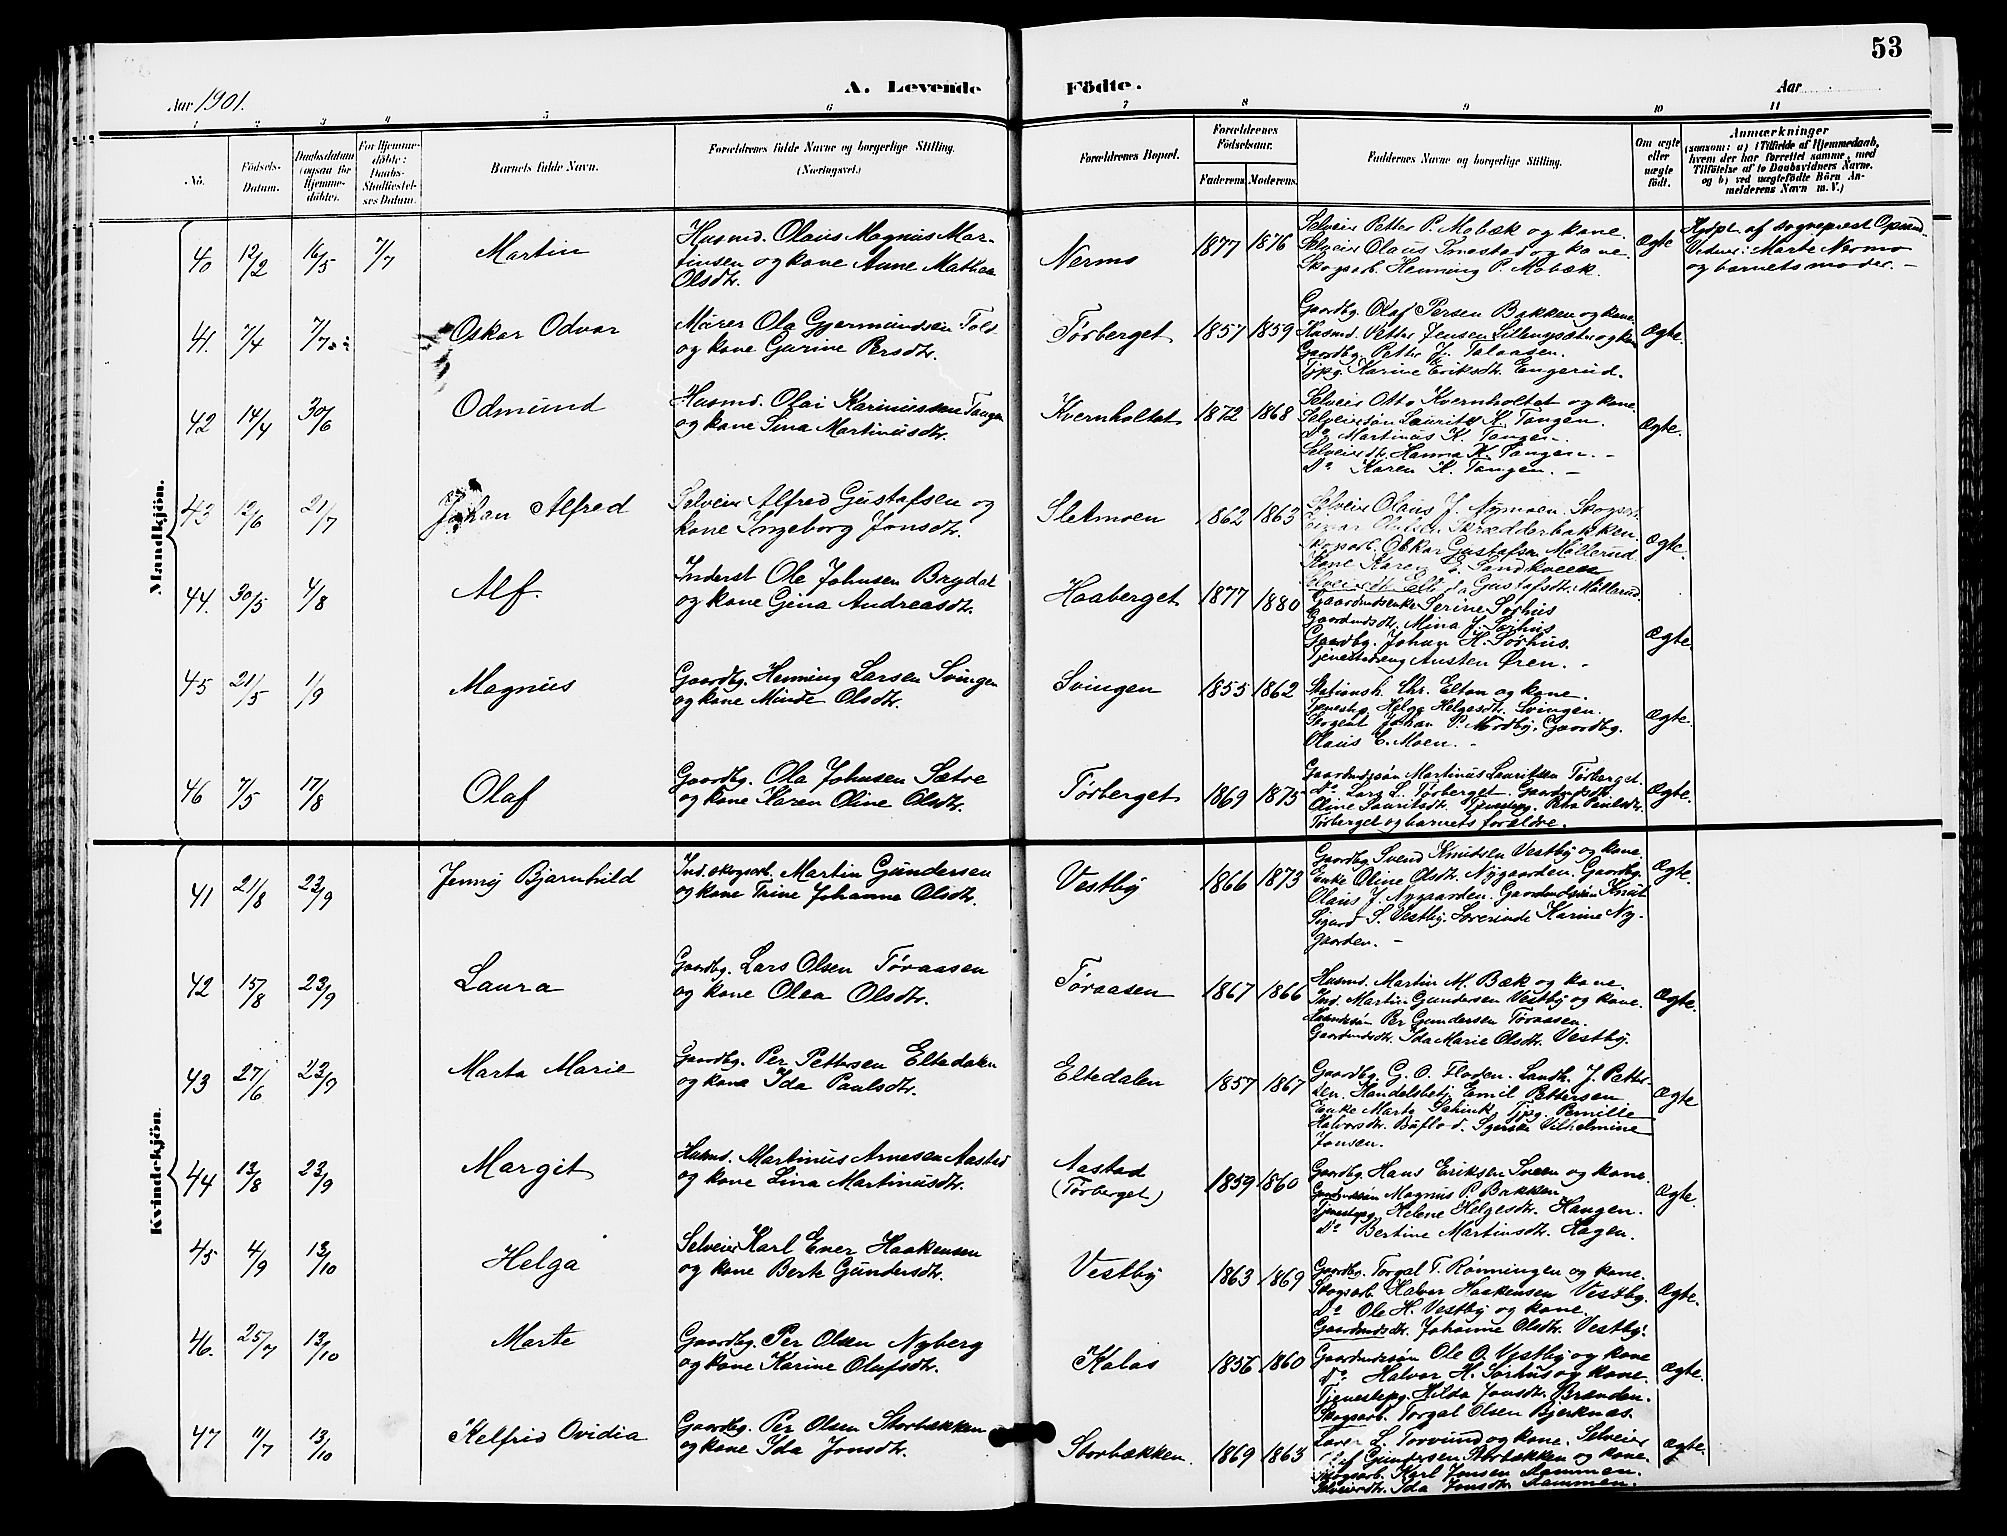 53
Aar 1901.
A. Levende
Födte.
Aar
1 2 3 4 5 6 7 8 9 10 11
No.
Födsels-
Datum.
Daabsdatum
(ogsaa for
Hjemme-
döbte).
For Hjemme-
döbte:
Daabs-
Stadfæstel-
ses Datum.
Barnets fulde Navn.
Forældrenes fulde Navne og borgerlige Stilling.
(Næringsvei.)
Forældrenes Bopæl.
Forældrenes
Födselsaar.
Faderens. Moderens.
Faddernes Navne og borgerlige Stilling.
Om ægte
eller
uægte
födt.
Anmærkninger
(saasom: a) i Tilfælde af Hjemmedaab,
hvem der har forrettet samme, med
Tilföielse af to Daabsvidners Navne,
og b) ved uægtefödte Börn An-
melderens Navn m. V.)
Mandkjön.
40 12/2 16/5 7/7 Martin
Husmd. Olaus Magnus Mar-
tinsen og kone Anne Mathea
Olsdtr.
Nermo 1877 1876
Selveier Petter P. Mobæk og kone.
Selveier Olaus Smestad og kone.
Skogsarb. Henning P. Mobæk.
Ægte
Hjdpt. af sogneprest Opsund.
Vidner: Marte Nermo
og barnets moder. -
41. 7/4 7/7 Oskar Odvar
Murer Ola Gjermundsen
og kone Gurine Persdtr.
Törberget 1857 1859
Gaardbg. Olaf Persen Bakken og kone
Husmd. Petter Jensen og kone
Gaardbg. Petter J. Talaasen.
Tjpg. Karine Eriksdtr. Engerud.
Ægte.
42 14/4 30/6 Odmund
Husmd. Olai Karinussen Tangen
og kone Lina Martinusdtr.
Kvernholtet 1872 1868
Selveier Otto Kvernholtet og kone.
Selveiersön Lauritz K. Tangen.
Do Martinus K. Tangen.
Selveierdtr. Hanna K. Tangen. -
Do Karen K. Tangen. -
Ægte.
43 12/6 21/7 Johan Alfred
Selveier Alfred Gustafsen og
kone Ingeborg Jonsdtr.
Sletmoen 1862 1863
Selveier Olaus J. Nymoen. Skogsarb.
Skrædderbakken.
Skogsarb. Oskar Gustafsen Möllerud.
Kone Karen Sandkveen
Selveierdtr. Gustafsdtr. Möllerud.
Ægte.
44. 30/5 4/8 Alf.
Inderst Ole Johnsen Brydal
og kone Gina Andreasdtr.
Haaberget 1877 1880
Gaardmdsenke Serine Sörhus
Gaardmdsdtr. Mina J. Sörhus
Gaardbg. Johan H. Sörhus.
Tjenestedreng Austen Øren. -
Ægte.
45 21/5 1/9 Magnus
Gaardbg. Henning Larsen Svingen
og kone Minde Olsdtr.
Svingen 1855 1862
Stationsh. Chr. Elton og kone.
Tjenestpg. Helga Helgesdtr. Svingen.
Johan P. Nordby. Gaardbg.
Olaus E. Moen. -
Ægte.
46 7/5 17/8 Olaf
Gaardbg. Ola Johnsen Sætre
og kone Karen Oline Olsdtr.
Törberget 1869 1875
Gaardmdssön Martinus Lauritsen Törberget.
Do Lars L. Törberget. Gaardmdsdtr.
Oline Lauritsdtr. Tjenestepg. Paulsdtr.
Törberget og barnets forældre.
Ægte.
Kvindekjön.
41 21/8 23/9 Jenny Bjarnhild
Ind. skogsarb. Martin Gundersen
og kone Trine Johanne Olsdtr.
Vestby 1866 1873
Gaardbg. Svend Knutsen Vestby og kone
Enke Oline Olsdtr. Nygaarden. Gaardbg.
Olaus J. Nygaarden. Gaardmdssön Knut
Sigurd S. Vestby. Karine Ny-
gaarden. -
Ægte.
42 15/8 23/9 Laura
Gaardbg. Lars Olsen Töraasen
og kone Olea Olsdtr.
Töraasen 1867 1866
Husmd. Martin M. Bæk og kone.
Ind. Martin Gundersen Vestby og kone.
Per Gundersen Töraasen.
Gaardmdsdtr. Ida Marie Olsdtr. Vestby.
Ægte.
43 27/6 23/9 Marta Marie
Gaardbg. Per Pettersen Eltedalen
og kone Ida Paulsdtr.
Eltedalen 1857 1867
Gaardbg. G. O. Floden. Landh. J. Petter-
sen. Handelsbetj. Emil Pettersen.
Enke Marte Tjpg. Pernille
Halvorsdtr. Buflod. Vilhelmine
Jonsen.
Ægte
44 13/8 23/9 Margit
Husmd. Martinus Arnesen Aastad
og kone Lina Martinusdtr.
Aastad
(Törberget)
1859 1860
Gaardbg. Hans Eriksen Sveen og kone.
Gaardmdssön Magnus P. Bakken
Tjenestepg. Helene Helgesdtr. Haugen.
Do Bertine Martinsdtr. Hagen.
Ægte.
45 4/9 13/10 Helga
Selveier Karl Ener Haakensen
og kone Berte Gundersdtr.
Vestby 1863 1869
Gaardbg. Torgal T. Rönningen og kone.
Skogsarb. Halvor Haakensen Vestby.
Do Ole H. Vestby og kone.
Gaardmdsdtr. Johanne Olsdtr. Vestby.
Ægte.
46. 25/7 13/10 Marte
Gaardbg. Per Olsen Nyberg
og kone Karine Olufsdtr.
Kolos 1856 1860
Gaardmdssön Ole O. Vestby og kone
Do Halvor H. Sörhus og kone.
Tjenestepg. Hilda Jonsdtr. Brenden.
Skogsarb. Torgal Olsen Bjerknæs.
Ægte.
47 11/7 13/10 Helfrid Ovidia
Gaardbg. Per Olsen Storbækken
og kone Ida Jonsdtr.
Storbækken. 1869 1863
Lærer L. Torvund og kone. Selveier
Gundersen Storbækken og kone.
Skogsarb. Karl Jonsen Stammen.
Selveierdtr. Ida Jonsdtr. Stammen.
Ægte.